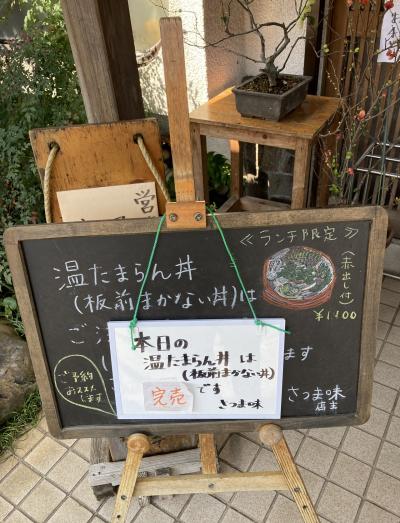 営
≪ランチ限定≫
温たまらん丼
(板前まかない丼)は
(赤出し付)
¥1100
ご
ます
ご予約
おススメ
します
さつま味
店主
本日の
温たまらん丼は
(板前まかない丼)
完売
です
さつま味